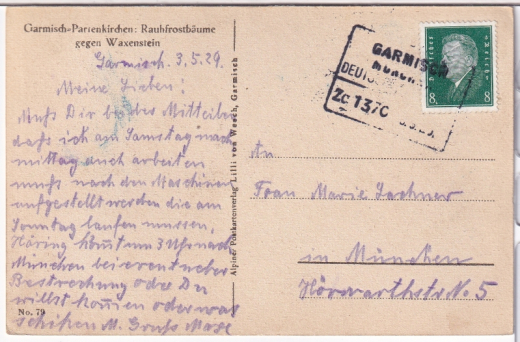 Garmisch-Partenkirchen: Rauhfrostbäume
gegen Waxenstein
Garmisch. 3.5.29.
Meine Lieben!
Muß Dir leider Mitteilen
daß ich am Samstag nach
mittag auch arbeiten
muß, nach den Maschinen
aufgestellt werden die am
Sonntag laufen müssen,
Häring kommt um 3 Uhr nach
München bei
Bestrechung oder Du
willst kommen oder was
schicken M. Gruß Maxe
No. 79
Alpiner Postkartenverlag Lilli von Wesch, Garmisch
GARMISCH
MÜNCHEN
Zc 1370
Deutsches Reich
8 8
An
Frau Marie Lachner
in München
Hörwarthstr No 5